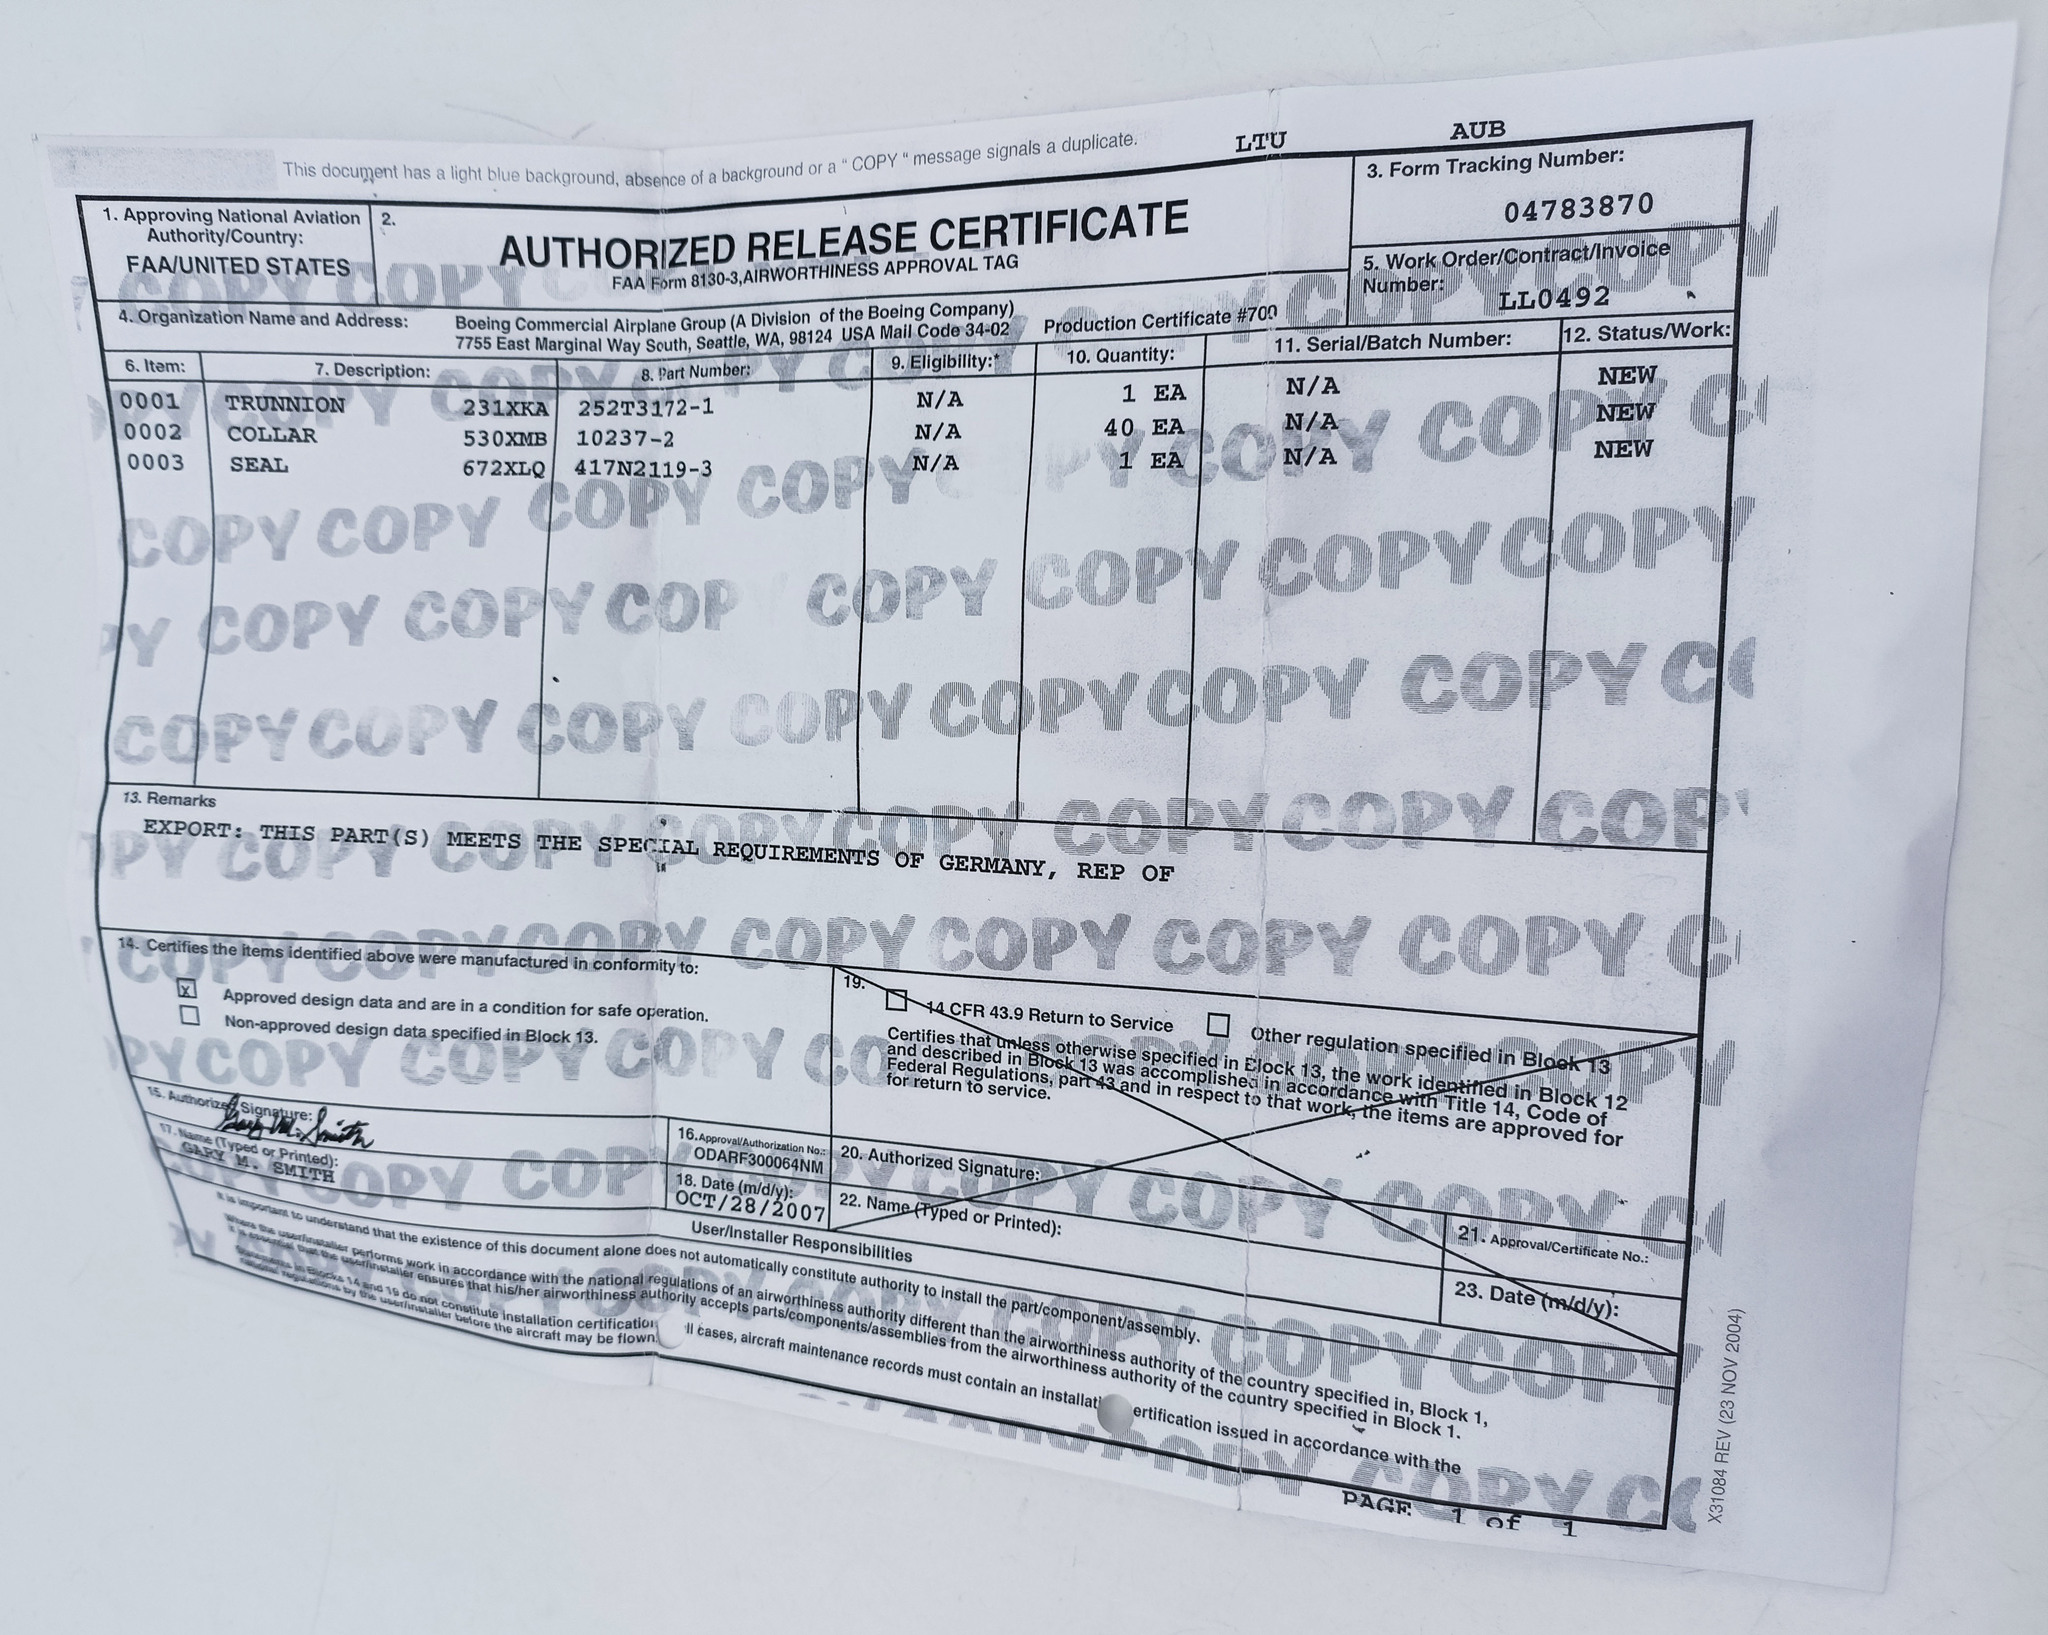 This document has a light blue background, absence of a background or a " COPY " message signals a duplicate.
LTU AUB
1. Approving National Aviation Authority/Country:
FAA/UNITED STATES
2.
AUTHORIZED RELEASE CERTIFICATE
FAA Form 8130-3,AIRWORTHINESS APPROVAL TAG
3. Form Tracking Number:
04783870
4. Organization Name and Address:
Boeing Commercial Airplane Group (A Division of the Boeing Company)
7755 East Marginal Way South, Seattle, WA, 98124 USA Mail Code 34-02
Production Certificate #700
5. Work Order/Contract/Invoice
Number:
LL0492
6. Item: 7. Description: 8. Part Number: 9. Eligibility:* 10. Quantity: 11. Serial/Batch Number: 12. Status/Work:
0001 TRUNNION 231XKA 252T3172-1 N/A 1 EA N/A NEW
0002 COLLAR 530XMB 10237-2 N/A 40 EA N/A NEW
0003 SEAL 672XLQ 417N2119-3 N/A 1 EA N/A NEW
COPY COPY COPY COPY COPY
13. Remarks
EXPORT: THIS PART(S) MEETS THE SPECIAL REQUIREMENTS OF GERMANY, REP OF
14. Certifies the items identified above were manufactured in conformity to:
x Approved design data and are in a condition for safe operation.
Non-approved design data specified in Block 13.
15. Authorized Signature:
Gary M. Smith
16. Approval/Authorization No.:
ODARF300064NM
17. Name (Typed or Printed):
GARY M. SMITH
18. Date (m/d/y):
OCT/28/2007
19.
14 CFR 43.9 Return to Service Other regulation specified in Block 13
Certifies that unless otherwise specified in Block 13, the work identified in Block 12
and described in Block 13 was accomplished in accordance with Title 14, Code of
Federal Regulations, part 43 and in respect to that work, the items are approved for
for return to service.
20. Authorized Signature:
21. Approval/Certificate No.:
22. Name (Typed or Printed):
23. Date (m/d/y):
User/Installer Responsibilities
It is important to understand that the existence of this document alone does not automatically constitute authority to install the part/component/assembly.
Where the user/installer performs work in accordance with the national regulations of an airworthiness authority different than the airworthiness authority of the country specified in, Block 1,
it is essential that the user/installer ensures that his/her airworthiness authority accepts parts/components/assemblies from the airworthiness authority of the country specified in Block 1.
Statements in Blocks 14 and 19 do not constitute installation certification ll cases, aircraft maintenance records must contain an installati ertification issued in accordance with the
national regulations by the user/installer before the aircraft may be flown.
PAGE 1 of 1
X31084 REV (23 NOV 2004)